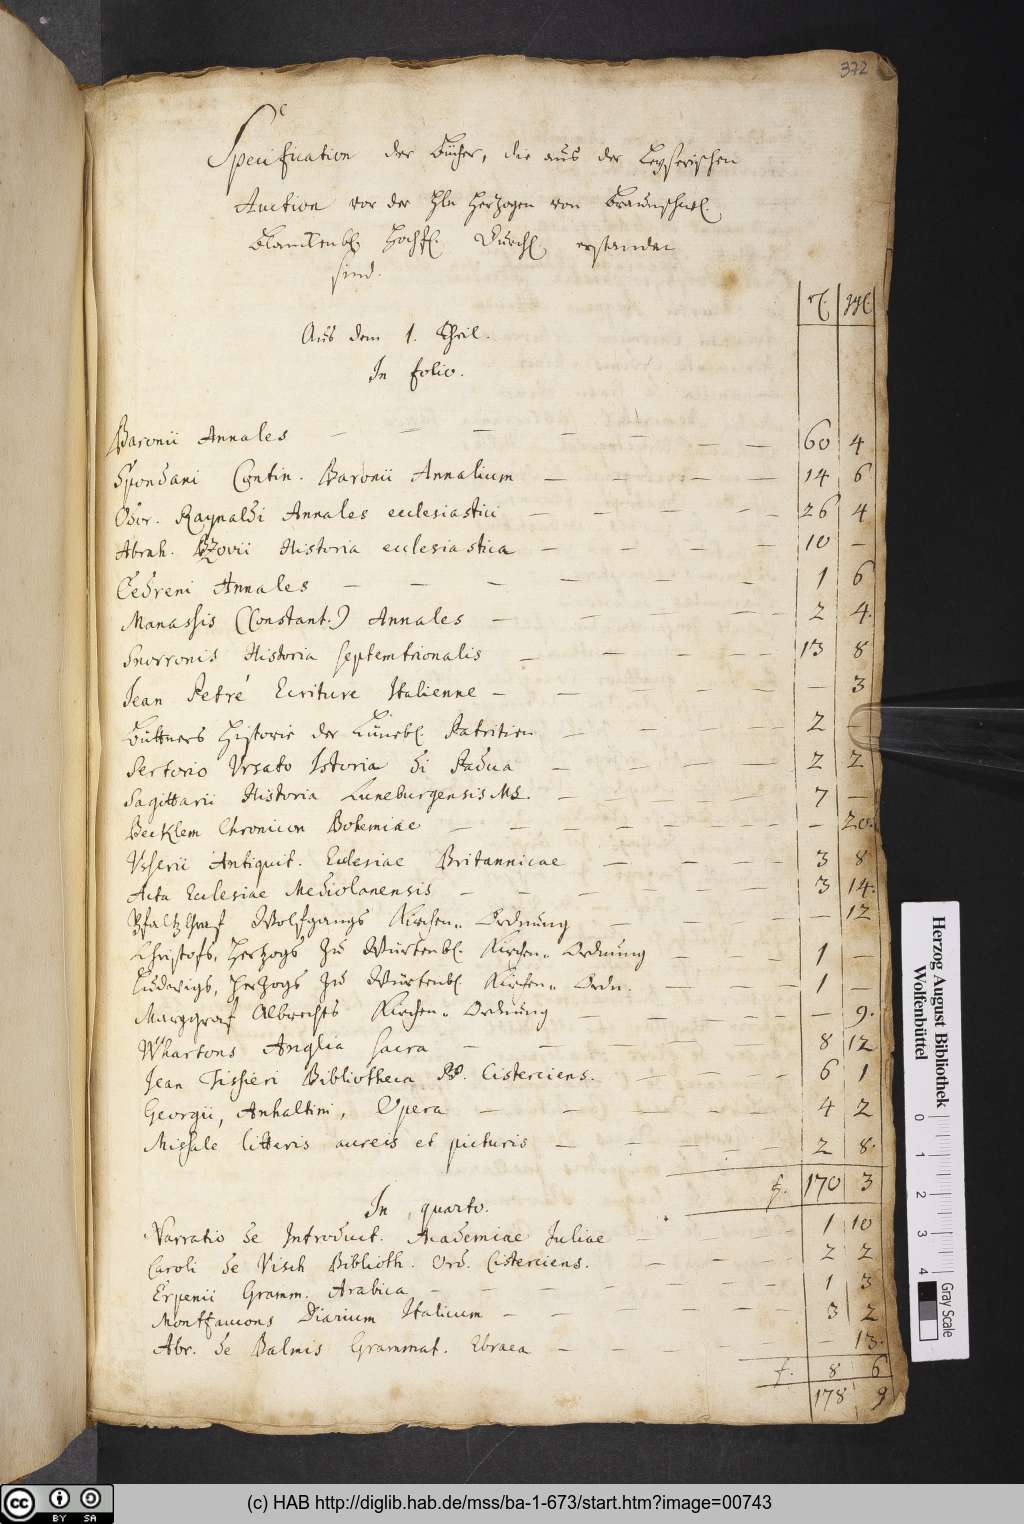 372
Specification der Bücher, die aus der Leyserischen
Auction vor der Hln Hertzogen von Braunschw.
Blanckenb. Hochf. Durchl. erstanden
sind.
Aus dem 1. Theil.
In folio.
Baronii Annales — 60 4
Spondani Contin. Baronii Annalium — 14 6
Odor. Raynaldi Annales ecclesiastici — 26 4
Abrah. Bzovii Historia ecclesiastica — 10 —
Cedreni Annales — 1 6
Manassis (Constant.) Annales — 2 4.
Snorronis Historia septemtrionalis — 13 8
Jean Petré Ecriture Italienne — — 3
Büttners Historie der Lüneb. Patritien — 2
Sertorio Vrsato Istoria di Padua — 2 2
Sagittarii Historia Luneburgensis Ms. — 7 —
Becklem Chronicon Bohemiae — — 20.
Vsserii Antiquit. Eclesiae Britannicae — 3 8
Acta Eclesiae Mediolanensis — 3 14.
Pfaltz Graf Wolfgangs Kirchen„ Ordnung — — 12
Christofs, Hertzogs zu Würtenb. Kirchen„ Ordnung — 1 —
Ludewigs, Hertzogs zu Würtenb. Kirchen„ Ordn. — 1 —
Marggraf Albrechts Kirchen„ Ordnung — — 9.
Whartons Anglia sacra — 8 12
Jean Tissieri Bibliotheca PP. Cisterciens. — 6 1
Georgii, Anhaltini, Opera — 4 2
Missale litteris aureis et picturis — 2 8.
f. 170 3
In quarto.
Narratio de Introduct. Academiae Juliae — 1 10
Caroli de Visch Biblioth. Ord. Cisterciens. — 2 2
Erpenii Gramm. Arabica — 1 3
Montfaucons Diarium Italicum — 3 2
Abr. de Balmis Grammat. Ebraea — — 13.
f. 8 6
178 9
Herzog August Bibliothek
Wolfenbüttel
0 1 2 3 4
Gray Scale
(c) HAB http://diglib.hab.de/mss/ba-1-673/start.htm?image=00743
cc BY SA